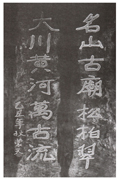 名山古廟松柏翠
大川黃河萬古流
乙丑年秋